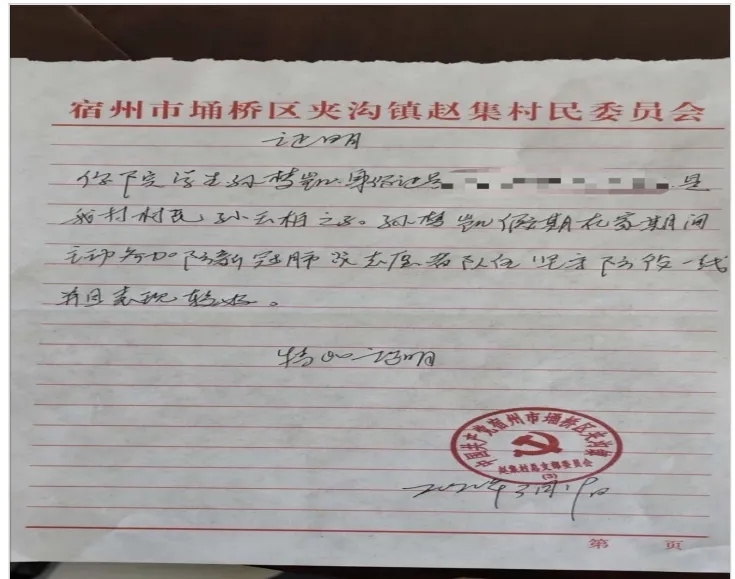 宿州市埇桥区夹沟镇赵集村民委员会
证明
学生孙梦凯 身份证号 是
我村村民孙云相之子。孙梦凯假期在家期间
主动参加防新冠肺炎志愿者队伍坚守防役一线
并且表现较好。
特此证明
中国共产党宿州市埇桥区夹沟镇
赵集村总支部委员会
(3)
2020年3月19日
第 页